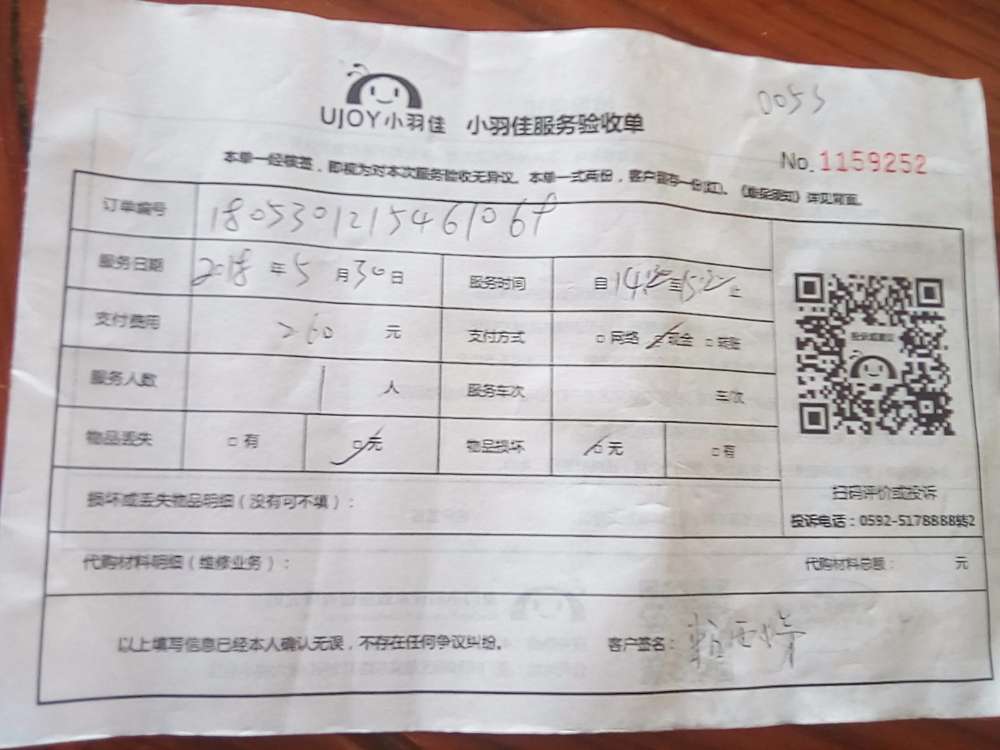 0053
UJOY小羽佳 小羽佳服务验收单
No.1159252
本单一经核签，即视为对本次服务验收无异议。本单一式两份，客户留存一份(红)。《服务须知》详见背面。
订单编号 180530121546106
服务日期 2018 年 5 月 30 日 服务时间 自 至 止
支付费用 260 元 支付方式 □ 网络 □ 现金 □ 转账
服务人数 1 人 服务车次 车次
物品丢失 □ 有 □ 无 物品损坏 □ 无 □ 有
损坏或丢失物品明细（没有可不填）：
扫码评价或投诉
投诉电话：0592-5178888转2
代购材料明细（维修业务）： 代购材料总额： 元
以上填写信息已经本人确认无误，不存在任何争议纠纷。 客户签名：